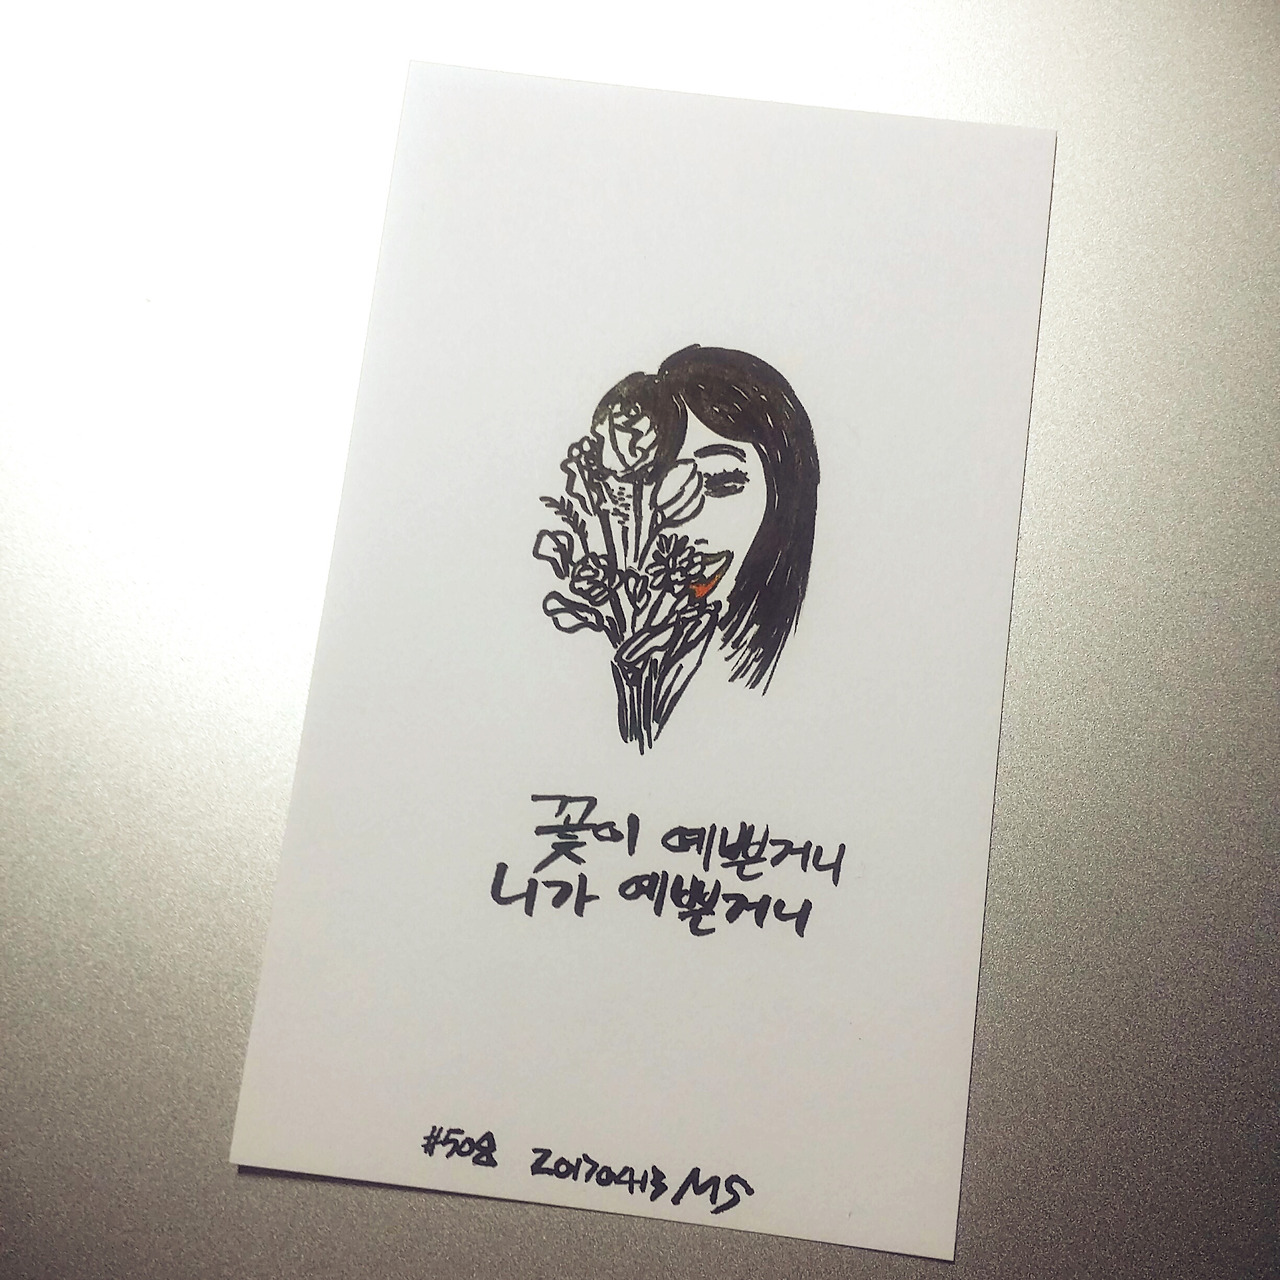 꽃이 예쁜거니
니가 예쁜거니
#50송 20170413 MS